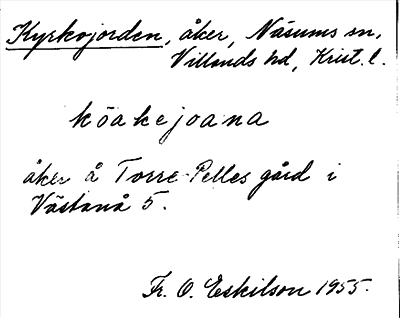 Kyrkojorden, åker, Näsums sn,
Villands hd, Krist. l.
köakejoana
åker å Torre-Pelles gård i
Västanå 5.
Fr. O. Eskilson 1955.